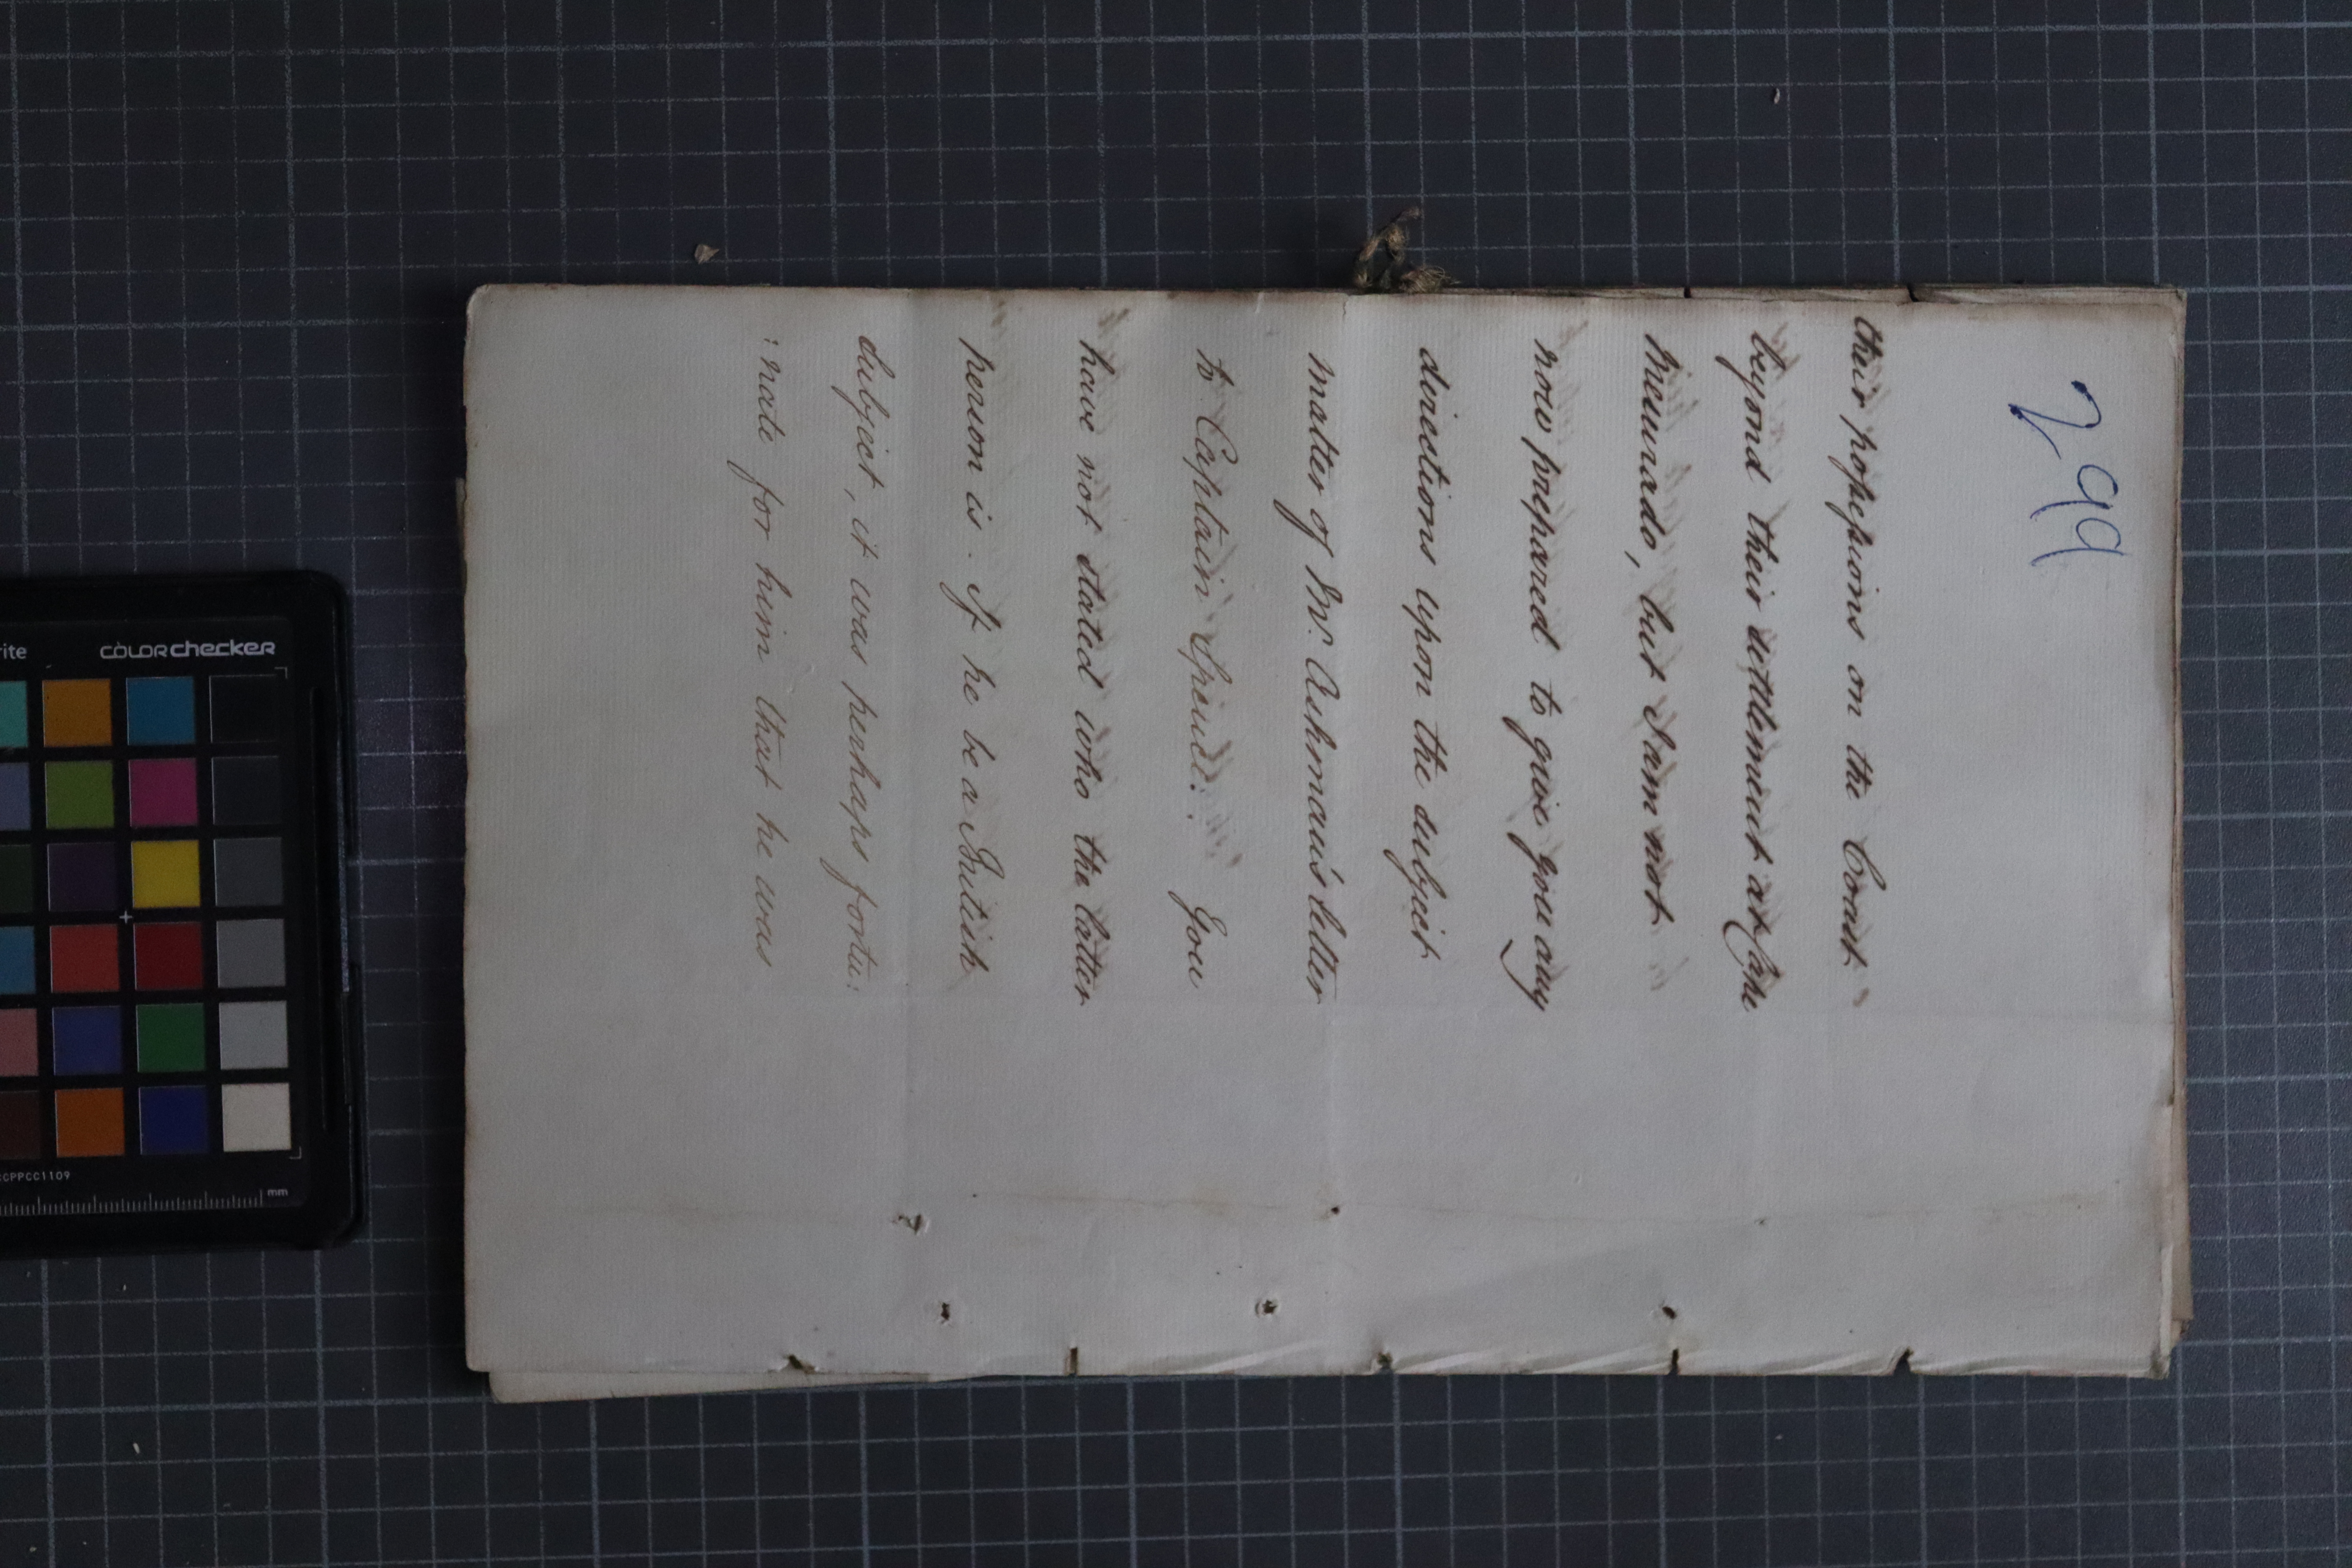 299
their possessions on the Coast
beyond their settlement at Cape
Mesurado, but I am not
now prepared to give you any
directions upon the subject
matter of Mr. Ashmun's letter
to Captain Spence. You
have not stated who the latter
person is. If he be a British
subject, it was perhaps fortu:
:nate for him that he was
colorchecker
rite
CCPPCC1109
mm